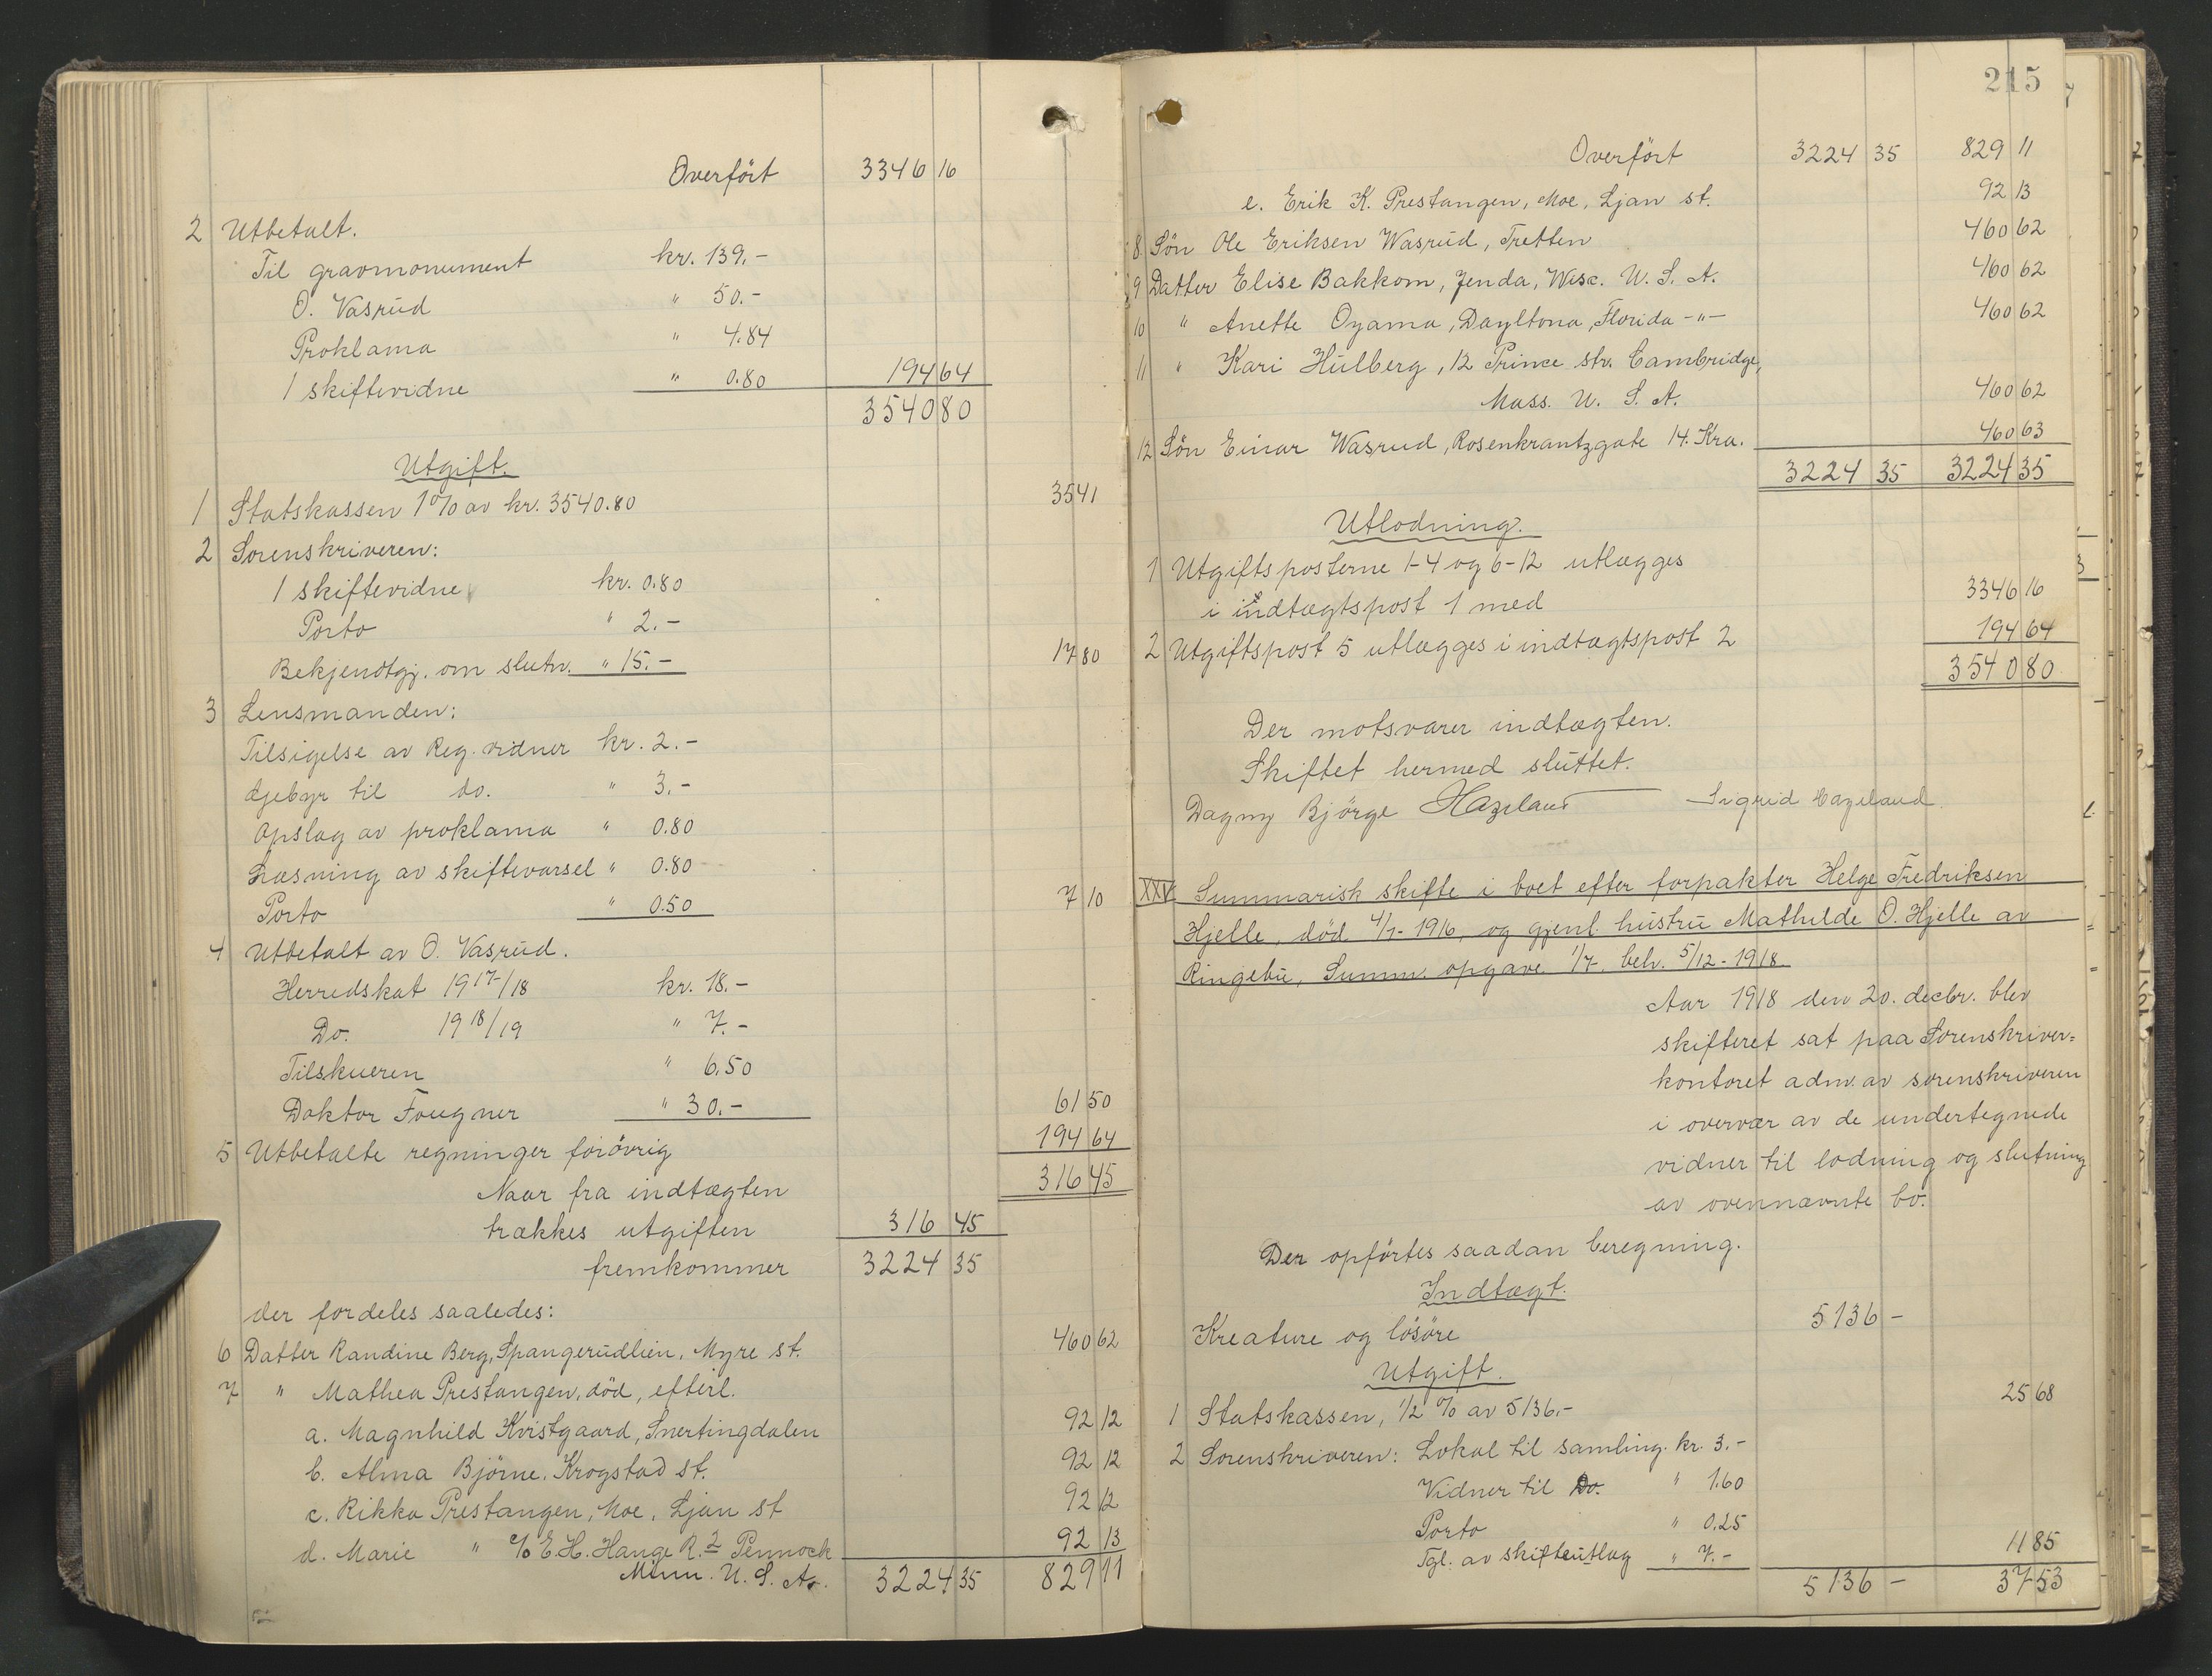 Overført 3346 16
2 Utbetalt.
Til gravmonument kr. 139.-
O. Vasrud " 50.-
Proklama " 4.84
1 skiftevidne " 0.80 194 64
3540 80
Utgift.
1 Statskassen 1% av kr. 3540.80 35 41
2 Sorenskriveren:
1 skiftevidne kr. 0.80
Porto " 2.-
Bekjendtgj. om slutn. " 15.- 17 80
3 Lensmanden:
Tilsigelse av Reg. vidner kr. 2.-
Gebyr til do. " 3.-
Opslag av proklama " 0.80
Læsning av skiftevarsel " 0.80
Porto " 0.50 7 10
4 Utbetalt av O. Vasrud.
Herredskat 1917/18 kr. 18.-
Do. 1918/19 " 7.-
Tilskueren " 6.50
Doktor Fougner " 30.- 61 50
5 Utbetalte regninger forøvrig 194 64
Naar fra indtægten 316 45
trækkes utgiften 316 45
fremkommer 3224 35
der fordeles saaledes:
6 Datter Randine Berg, Spangerudlien, Myre st. 460 62
7 " Mathea Prestangen, død, efterl.
a. Magnhild Kvistgaard, Snertingdalen 92 12
b. Alma Bjørne, Krogstad st. 92 12
c. Rikka Prestangen, Moe, Ljan st 92 12
d. Marie " c/o E. H. Hange R. 2 Pennock 92 13
Minn. U. S. A. 3224 35 829 11
215
Overført 3224 35 829 11
e. Erik K. Prestangen, Moe, Ljan st. 92 13
8 Søn Ole Eriksen Wasrud, Tretten 460 62
9 Datter Elise Bakkom, Jenda, Wisc. U. S. A. 460 62
10 " Anette Oyama, Dayltona, Florida -"- 460 62
11 " Kari Hulberg, 12 Prince str. Cambridge,
Mass. U. S. A. 460 62
12 Søn Einar Wasrud, Rosenkrantzgate 14. Kra. 460 63
3224 35 3224 35
Utlodning.
1 Utgiftsposterne 1-4 og 6-12 utlægges
i indtægtspost 1 med 3346 16
2 Utgiftspost 5 utlægges i indtægtspost 2 194 64
3540 80
Der motsvarer indtægten.
Skiftet hermed sluttet.
Dagny Bjørge Hazeland Sigrid Hazeland
XXV Summarisk skifte i boet efter forpakter Helge Fredriksen
Hjelle, død 4/7-1916, og gjenl. hustru Mathilde O. Hjelle av
Ringebu, Summ. opgave 1/7, belv. 5/12-1918
Aar 1918 den 20. decbr. blev
skifteret sat paa Sorenskriver=
kontoret adm. av sorenskriveren
i overvær av de undertegnede
vidner til lodning og slutning
av ovennævnte bo.
Der opførtes saadan beregning.
Indtægt.
Kreature og løsøre 5136 -
Utgift.
1 Statskassen, 1/2 % av 5136.- 25 68
2 Sorenskriveren: Lokal til samling kr. 3.-
Vidner til Do. " 1.60
Porto " 0.25
Tgl. av skifteutlæg " 7.- 11 85
5136 - 37 53